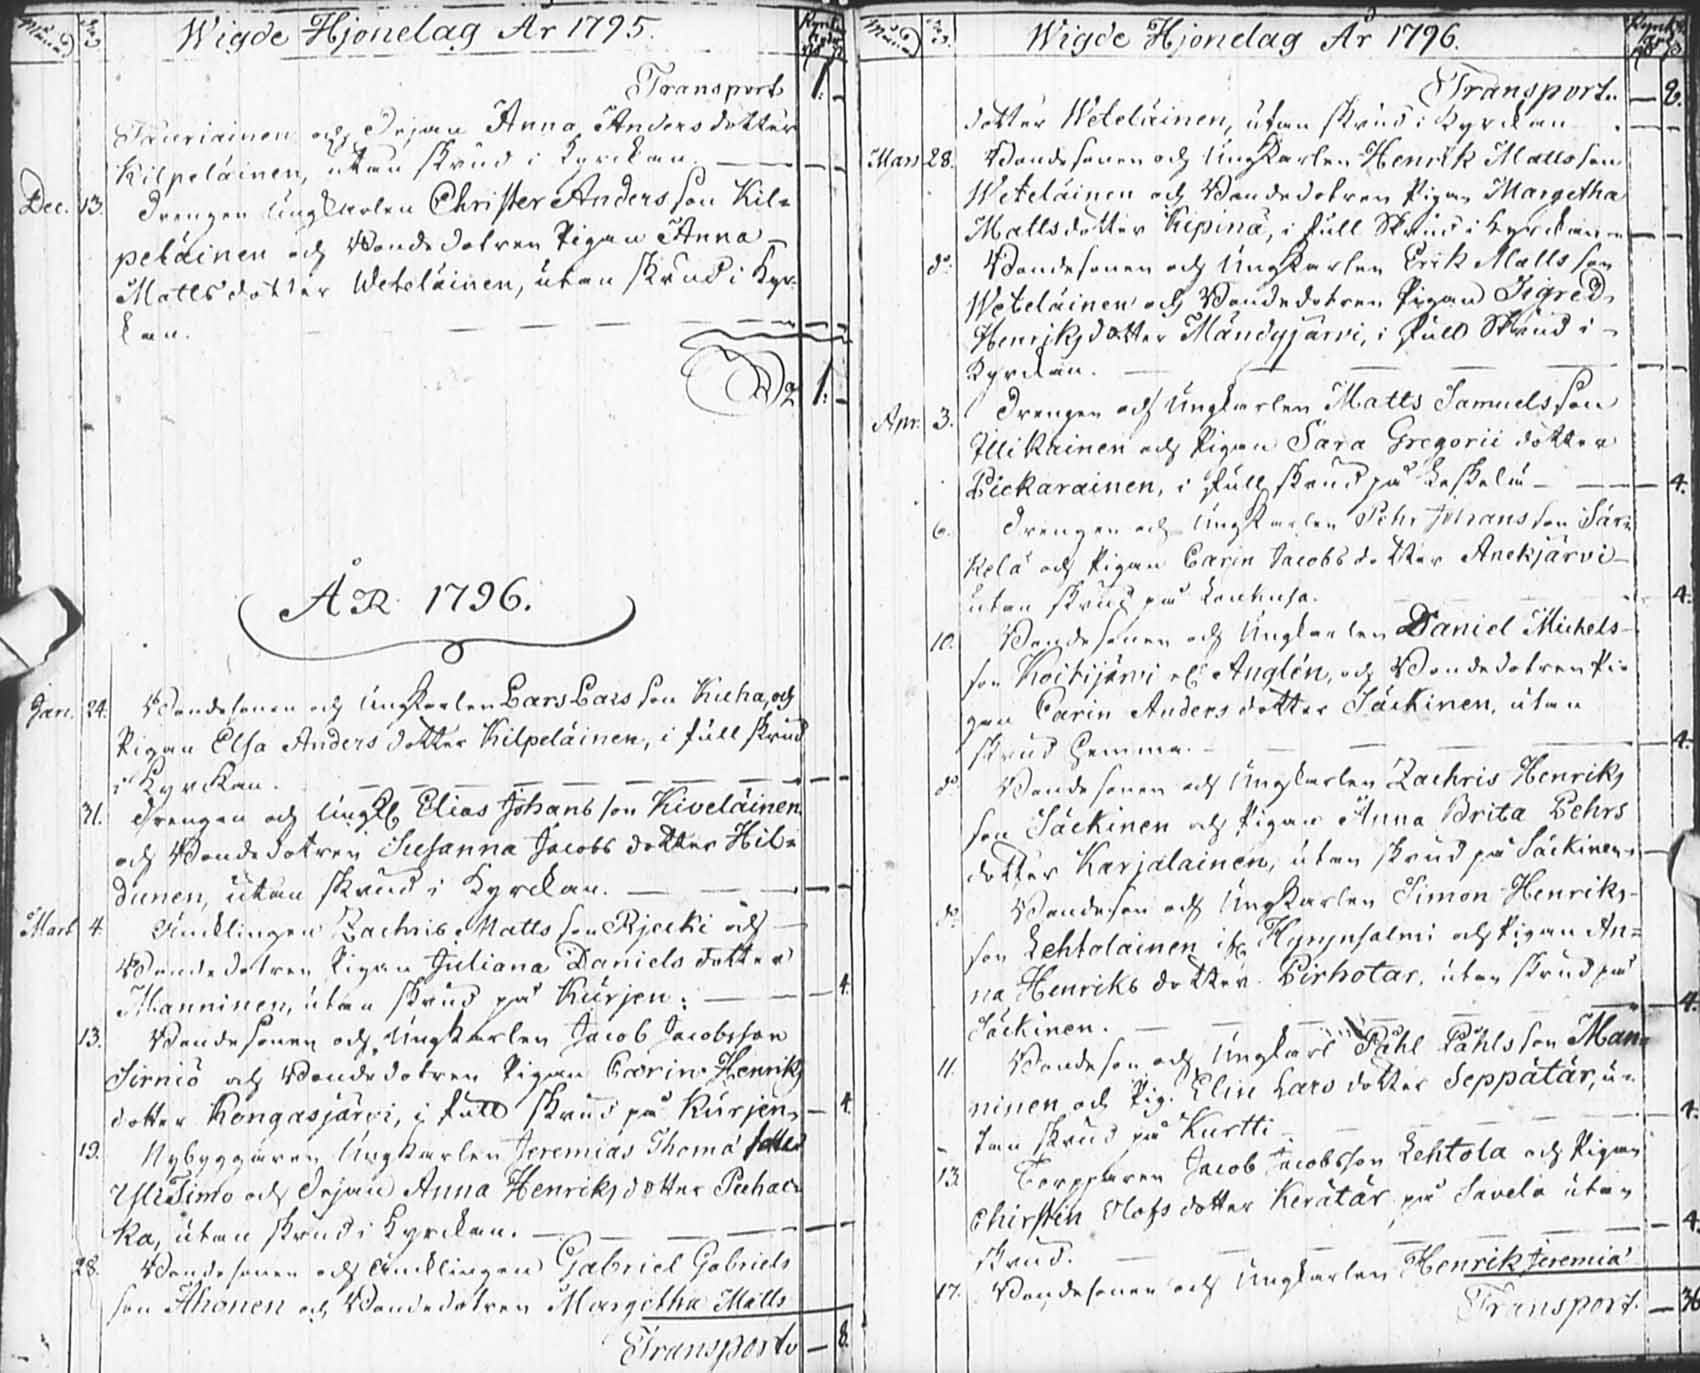 Månad
Wigde Hjonelag År 1795.
Transport 1: –
Tauriainen och Dejan Anna Anders dotter
Kilpeläinen, utan skrud i Kyrckan. – –
Dec. 13. Drengen Ungkarlen Christer Anders son Kil=
peläinen och Bondedotren Pigan Anna
Matts dotter Weteläinen, utan skrud i Kyr=
kan. – –
1: –
ÅR 1796.
Jan. 24. Bondesonen och Ungkarlen Lars Lars son Kuha, och
Pigan Elsa Anders dotter Kilpeläinen, i full skrud
i Kyrckan. – –
31. Drengen och Ungk. Elias Johans son Kiveläinen
och Bondedotren Susanna Jacobs dotter Hil=
dunen, utan skrud i Kyrckan. – –
Mart 4. Encklingen Zachris Matts son Rjecki och
Bondedotren Pigan Juliana Daniels dotter
Manninen, utan skrud på Kurjen: – 4.
13. Bondesonen och Ungkarlen Jacob Jacobsson
Sirniö och Bondedotren Pigan Carin Henriks
dotter Kongasjärvi, i full skrud på Kurjen, – 4.
19. Nybyggaren Ungkarlen Jeremias Thomæ
YliTimo och Dejan Anna Henriks dotter Puhac=
ka, utan skrud i Kyrckan. – –
28. Bondesonen och Encklingen Gabriel Gabriels
son Ahonen och Bondedotren Margetha Matts
Transport – 8.
Månad
Wigde Hjonelag År 1796.
Transport. – 8.
dotter Weteläinen, utan skrud i Kyrckan – –
Mars 28. Bondesonen och Ungkarlen Henrik Matts son
Weteläinen och Bondedotren Pigan Margetha
Matts dotter Kipinä, i full Skrud i Kyrckan – –
do. Bondesonen och Ungkarlen Erik Matts son
Weteläinen och Bondedotren Pigan Sigred
Henriks dotter Mändyjärvi, i full Skrud i
Kyrckan. – –
Apr. 3. Drengen och Ungkarlen Matts Samuels son
Illikainen och Pigan Sara Gregorii dotter
Pickarainen, i full skrud på – 4.
6. Drengen och Ungkarlen Pehr Johans son Sär=
kelä och Pigan Carin Jacobs dotter Anekjärvi
utan skrud på – 4.
10. Bondesonen och Ungkarlen Daniel Michels
son Koitijärvi el. Anglén, och Bondedotren Pi=
gan Carin Anders dotter Säckinen, utan
skrud hemma. – 4.
do. Bondesonen och Ungkarlen Zachris Henriks
son Säckinen och Pigan Anna Brita Pehrs
dotter Karjalainen, utan skrud på Säckinen –
do. Bondeson och Ungkarlen Simon Henriks
son Lehtolainen ifr. Hyrynsalmi och Pigan An=
na Henriks dotter Pirhotar, utan skrud på
Säckinen. – 4.
11. Bondeson och Ungkarl Påhl Påhls son Man=
ninen och Pig. Elin Lars dotter Seppätär, u=
tan skrud på Kurtti – 4.
13. Torpparen Jacob Jacobsson Lehtola och Pigan
Chirstin Olofs dotter Kerätär på Savela utan
skrud. – 4.
17. Bondesonen och Ungkarlen Henrik Jeremiæ
Transport. – 36